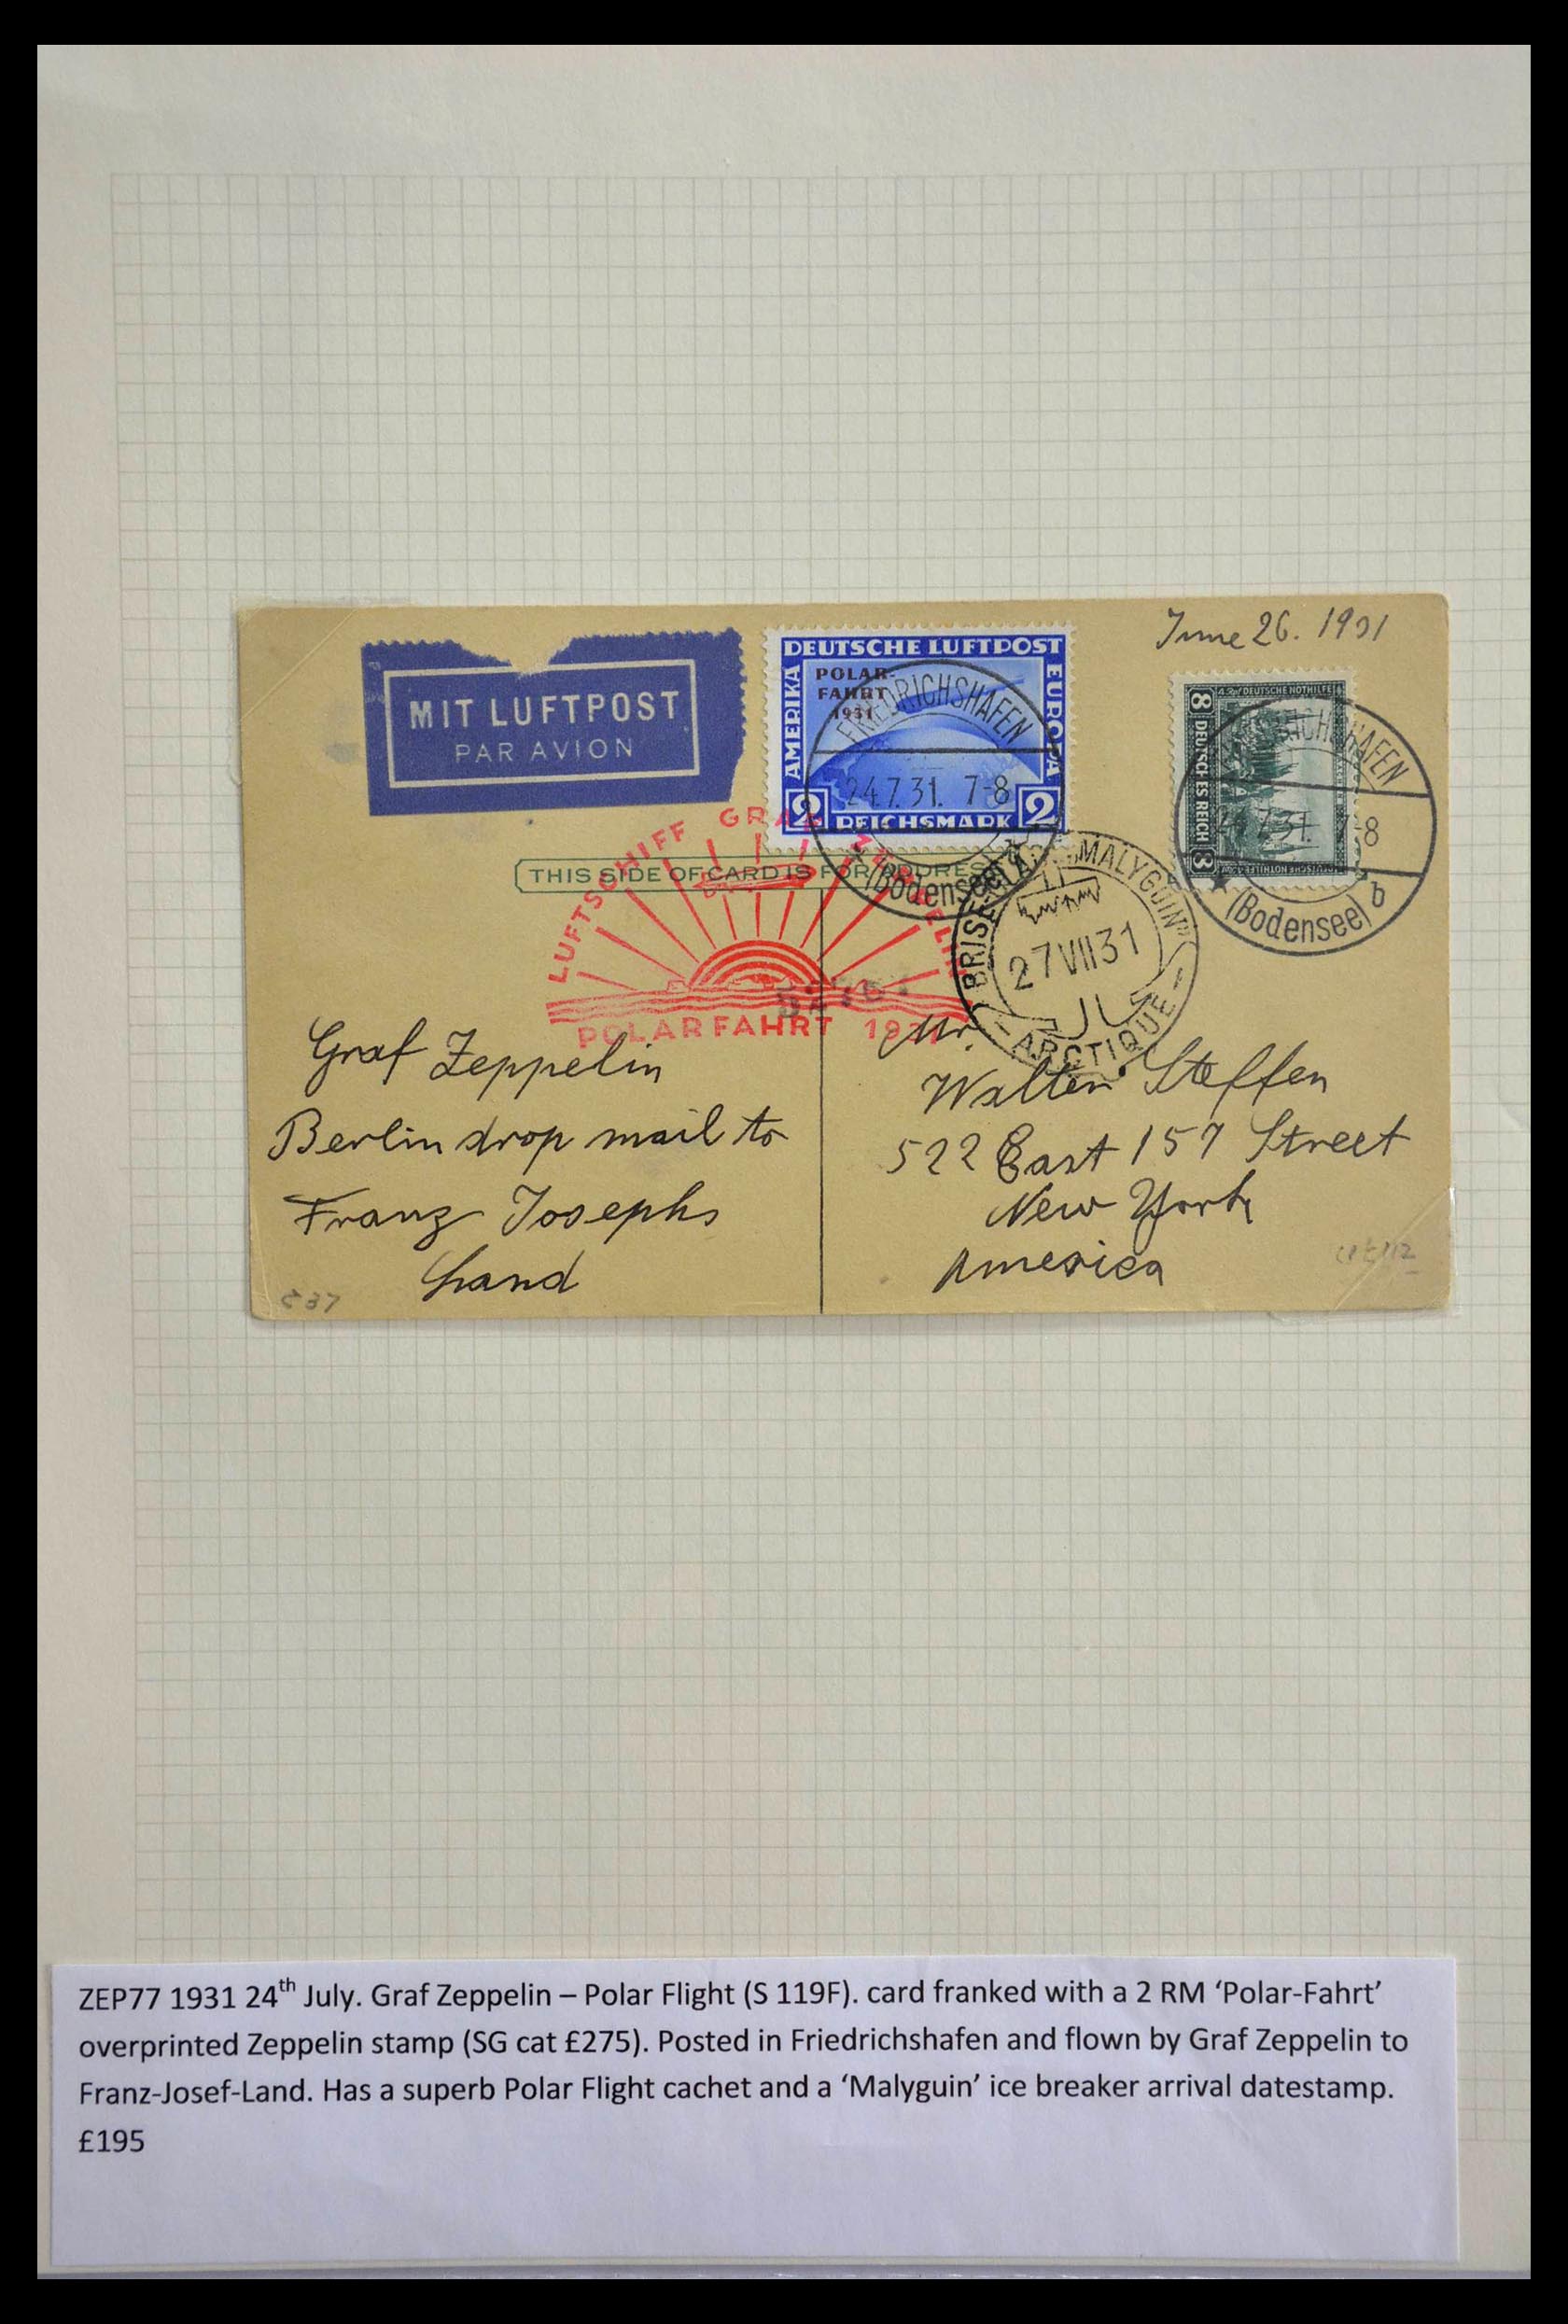 June 26. 1931
MIT LUFTPOST
PAR AVION
DEUTSCHE LUFTPOST
AMERIKA
EUROPA
POLAR-
FAHRT
1931
2 REICHSMARK 2
FRIEDRICHSHAFEN
24.7.31. 7-8
(Bodensee)
8 DEUTSCHES REICH 8
DEUTSCHE NOTHILFE
7-8
(Bodensee) b
THIS SIDE OF CARD IS FOR ADDRESS
LUFTSCHIFF GRAF ZEPPELIN
POLARFAHRT 1931
"MALYGUIN"
27 VII 31
ARCTIQUE
Graf Zeppelin
Berlin drop mail to
Franz Josephs
Land
Mr.
Walter Steffen
522 East 157 Street
New York
America
ZEP77 1931 24th July. Graf Zeppelin – Polar Flight (S 119F). card franked with a 2 RM ‘Polar-Fahrt’
overprinted Zeppelin stamp (SG cat £275). Posted in Friedrichshafen and flown by Graf Zeppelin to
Franz-Josef-Land. Has a superb Polar Flight cachet and a ‘Malyguin’ ice breaker arrival datestamp.
£195